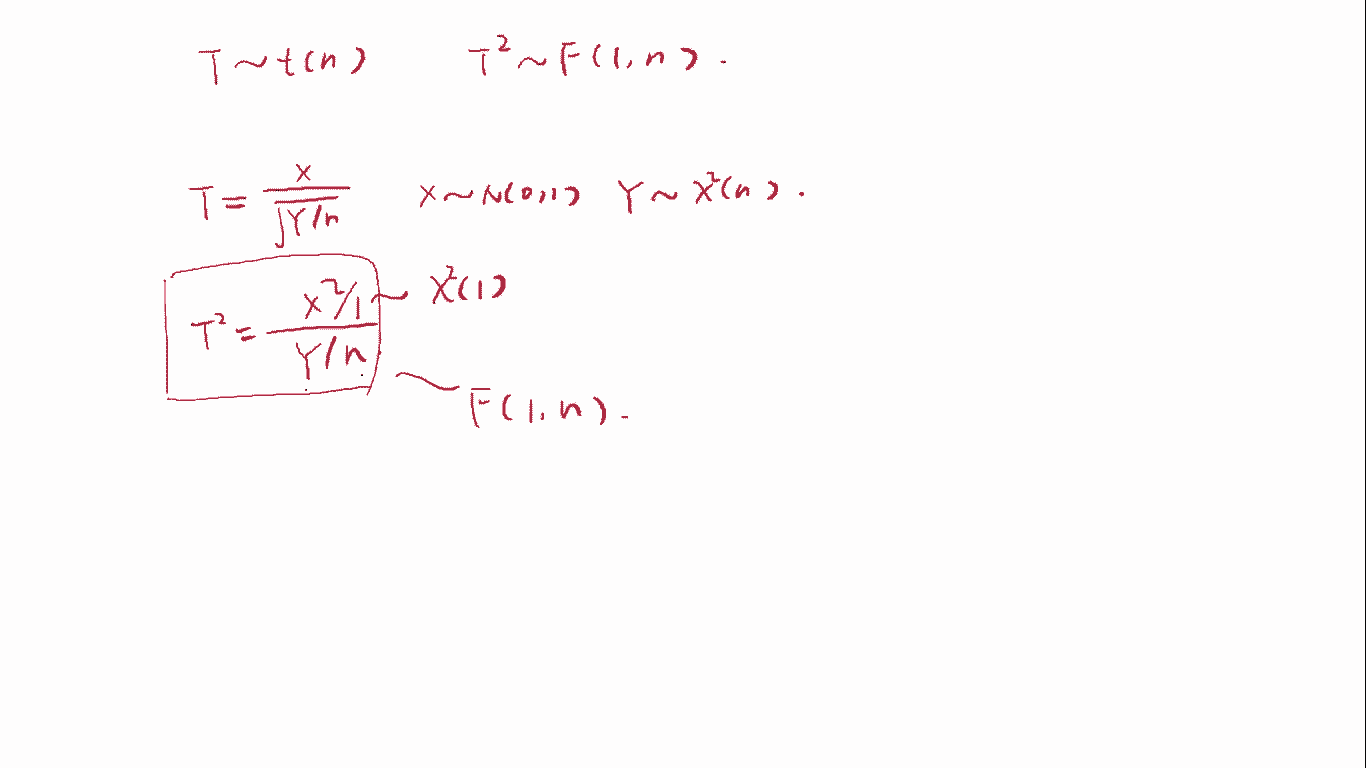 T ~ t(n)    T² ~ F(1, n).
T = X / √(Y/n)    X ~ N(0,1)    Y ~ χ²(n).
T² = (X²/1) / (Y/n)    ~ χ²(1)
~ F(1, n).